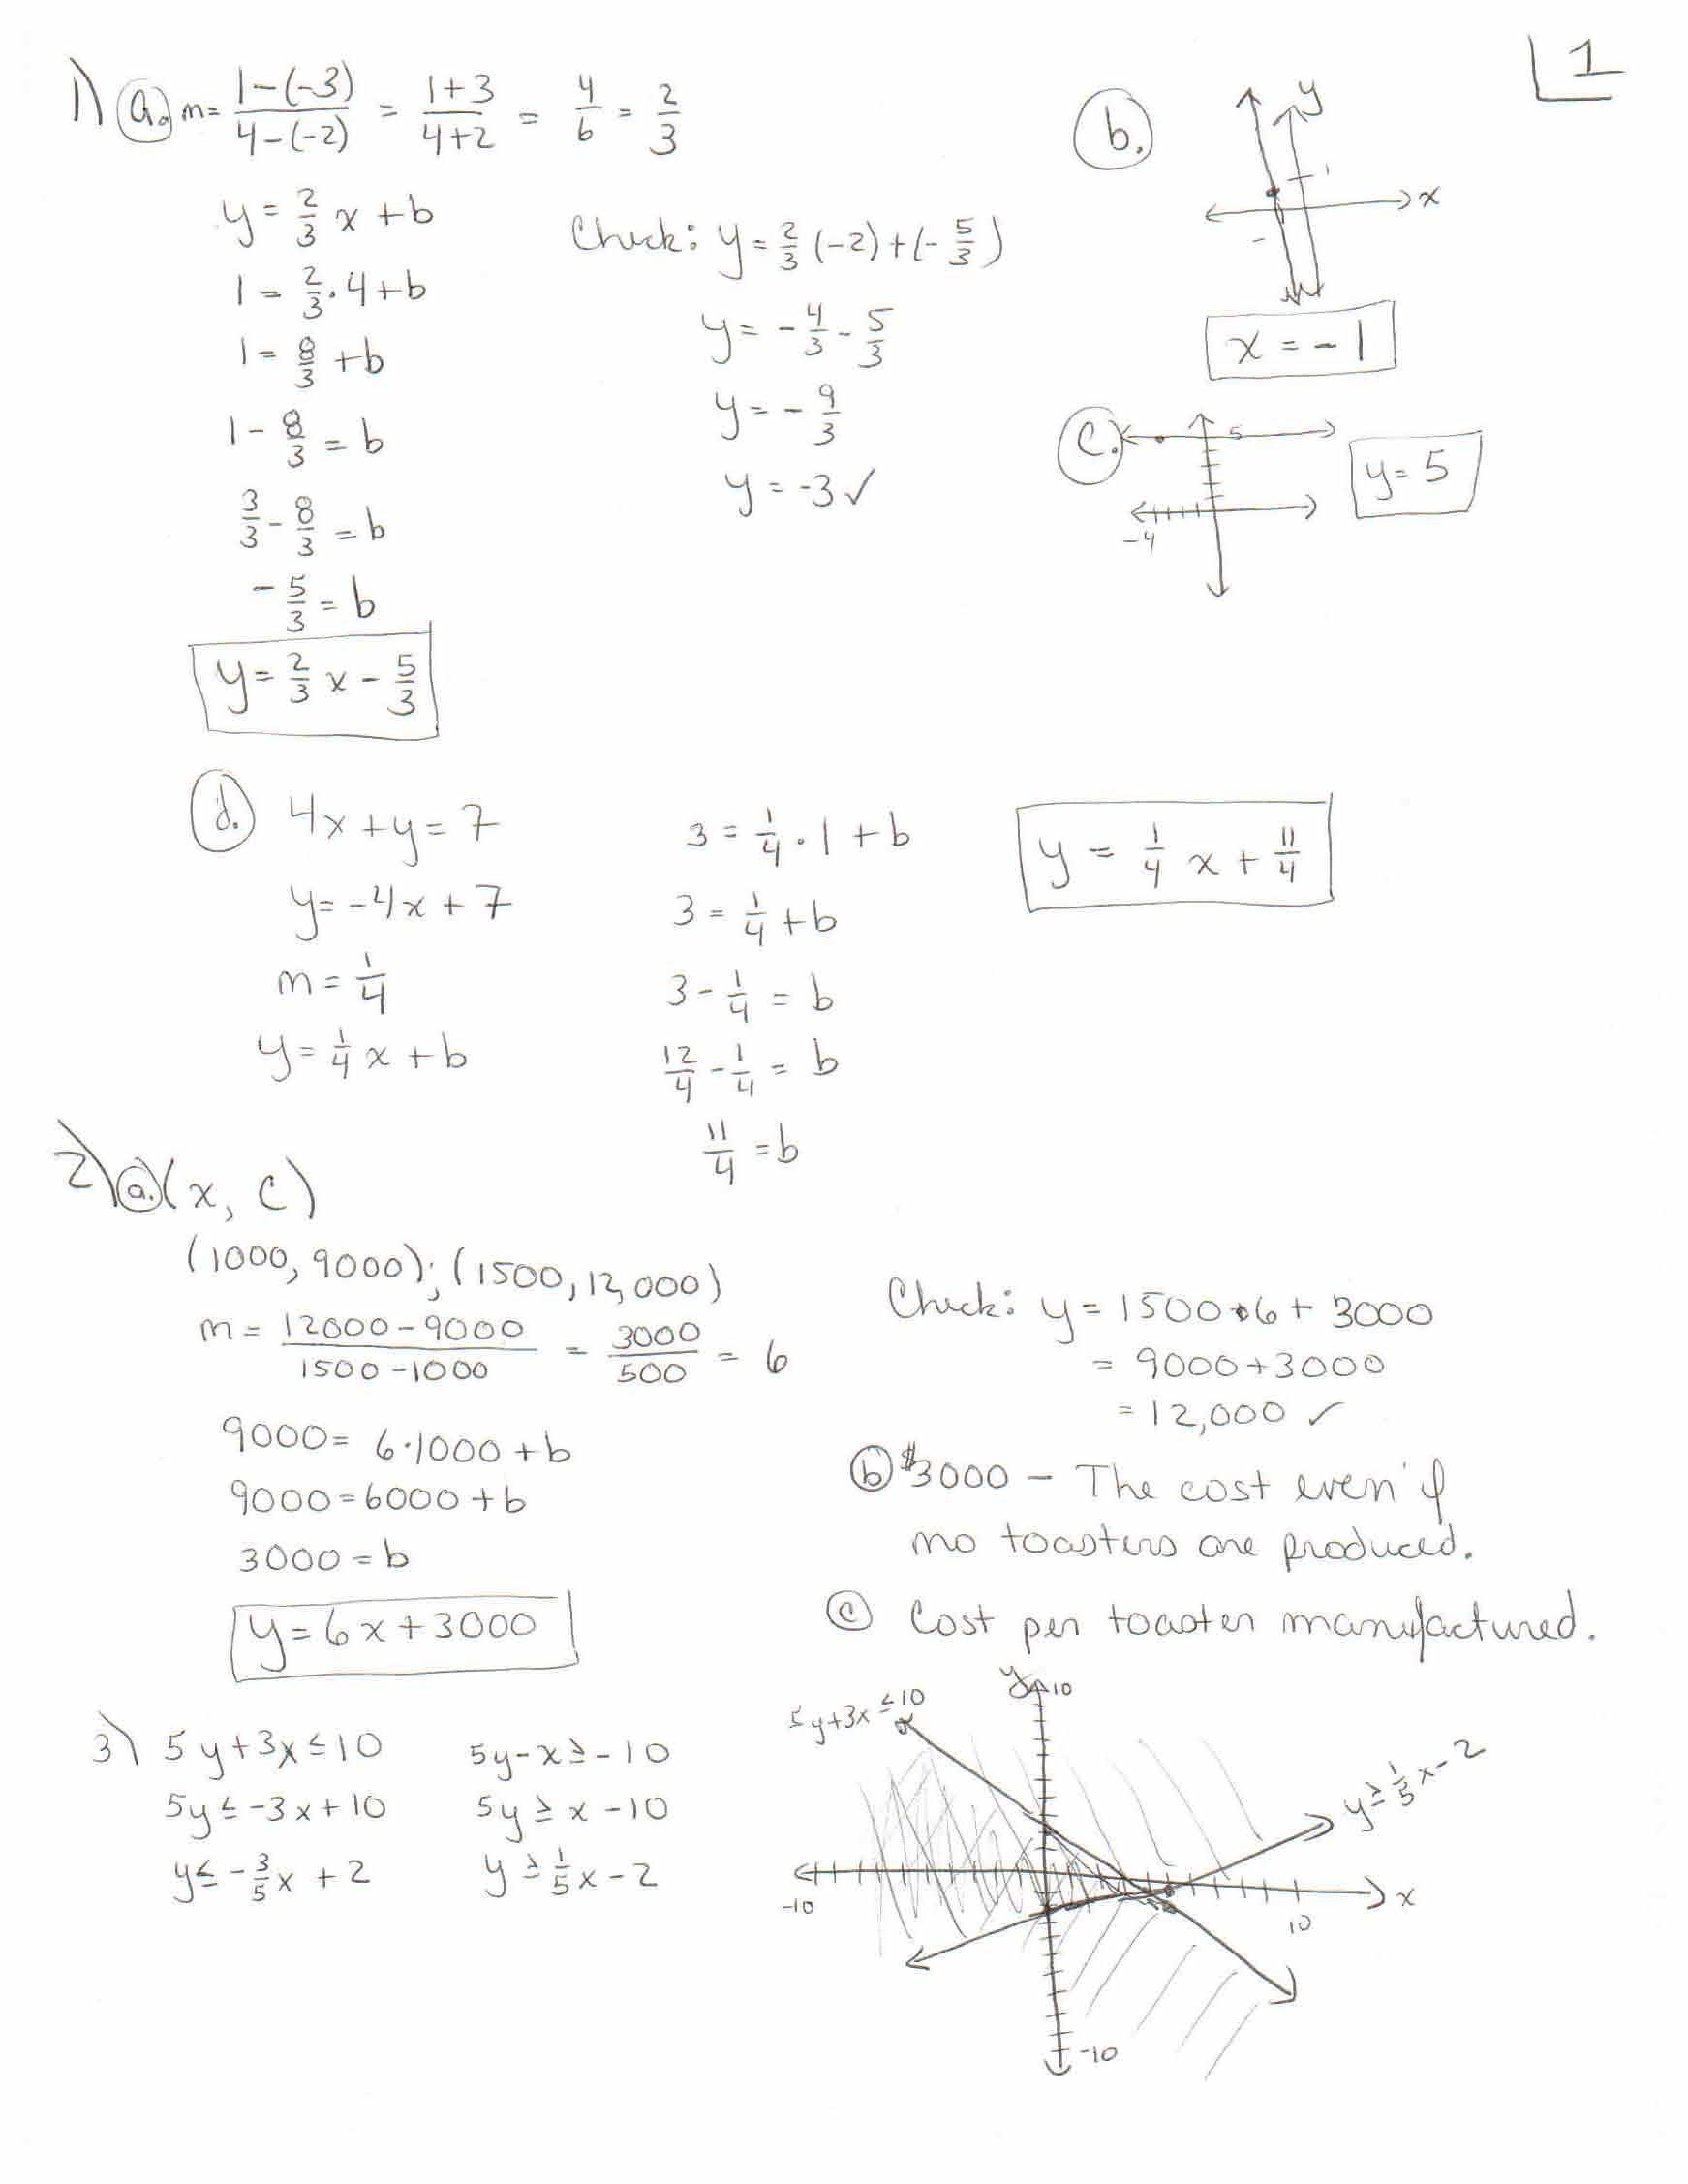 1
1) a. m = (1-(-3))/(4-(-2)) = (1+3)/(4+2) = 4/6 = 2/3
y = 2/3 x + b
1 = 2/3 · 4 + b
1 = 8/3 + b
1 - 8/3 = b
3/3 - 8/3 = b
- 5/3 = b
y = 2/3 x - 5/3
Check: y = 2/3 (-2) + (- 5/3)
y = - 4/3 - 5/3
y = - 9/3
y = -3 ✓
b.
y
1
x
-
x = -1
c.
5
-4
y = 5
d. 4x + y = 7
y = -4x + 7
m = 1/4
y = 1/4 x + b
3 = 1/4 · 1 + b
3 = 1/4 + b
3 - 1/4 = b
12/4 - 1/4 = b
11/4 = b
y = 1/4 x + 11/4
2) a. (x, C)
(1000, 9000); (1500, 12,000)
m = (12000 - 9000)/(1500 - 1000) = 3000/500 = 6
9000 = 6·1000 + b
9000 = 6000 + b
3000 = b
y = 6x + 3000
Check: y = 1500·6 + 3000
= 9000 + 3000
= 12,000 ✓
b $3000 - The cost even if
no toasters are produced.
c Cost per toaster manufactured.
3) 5y + 3x ≤ 10
5y ≤ -3x + 10
y ≤ - 3/5 x + 2
5y - x ≥ -10
5y ≥ x - 10
y ≥ 1/5 x - 2
5y + 3x ≤ 10
y
10
y ≥ 1/5 x - 2
-10
10
x
-10